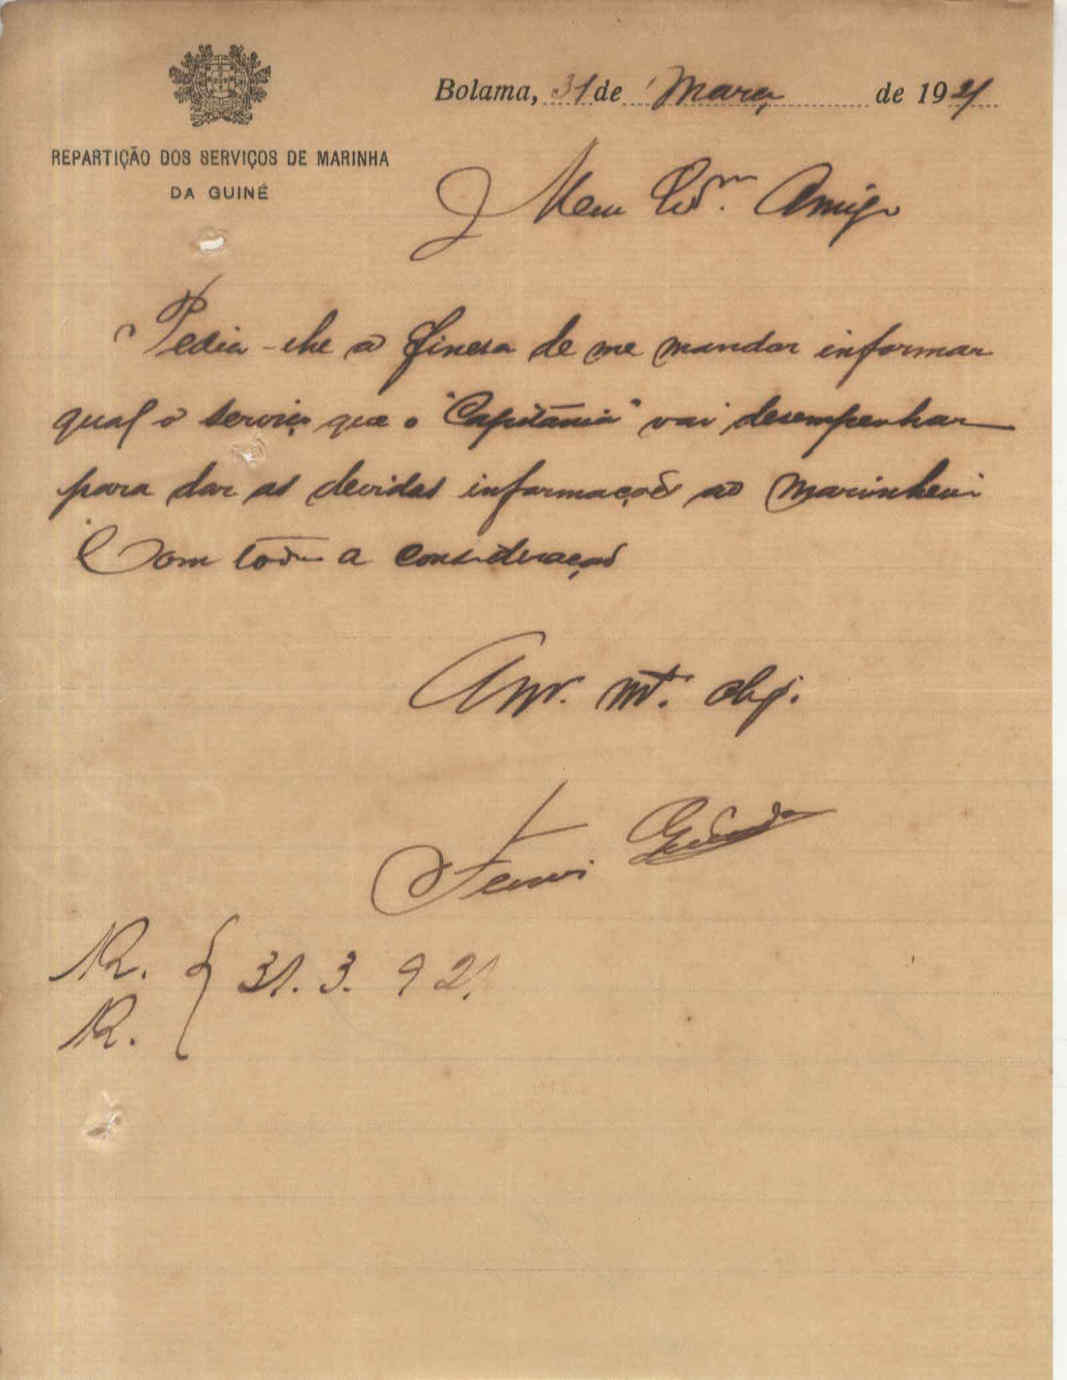 Bolama, 31 de Março de 1921
REPARTIÇÃO DOS SERVIÇOS DE MARINHA
DA GUINÉ
Meu Amigo
Pedia-lhe a finesa de me mandar informar
qual o serviço que o "Capitania" vai desempenhar
para dar as devidas informações ao Marinheiro
Com toda a consideração
Amº. mtº. obgº.
R. { 31. 3. 921
R.